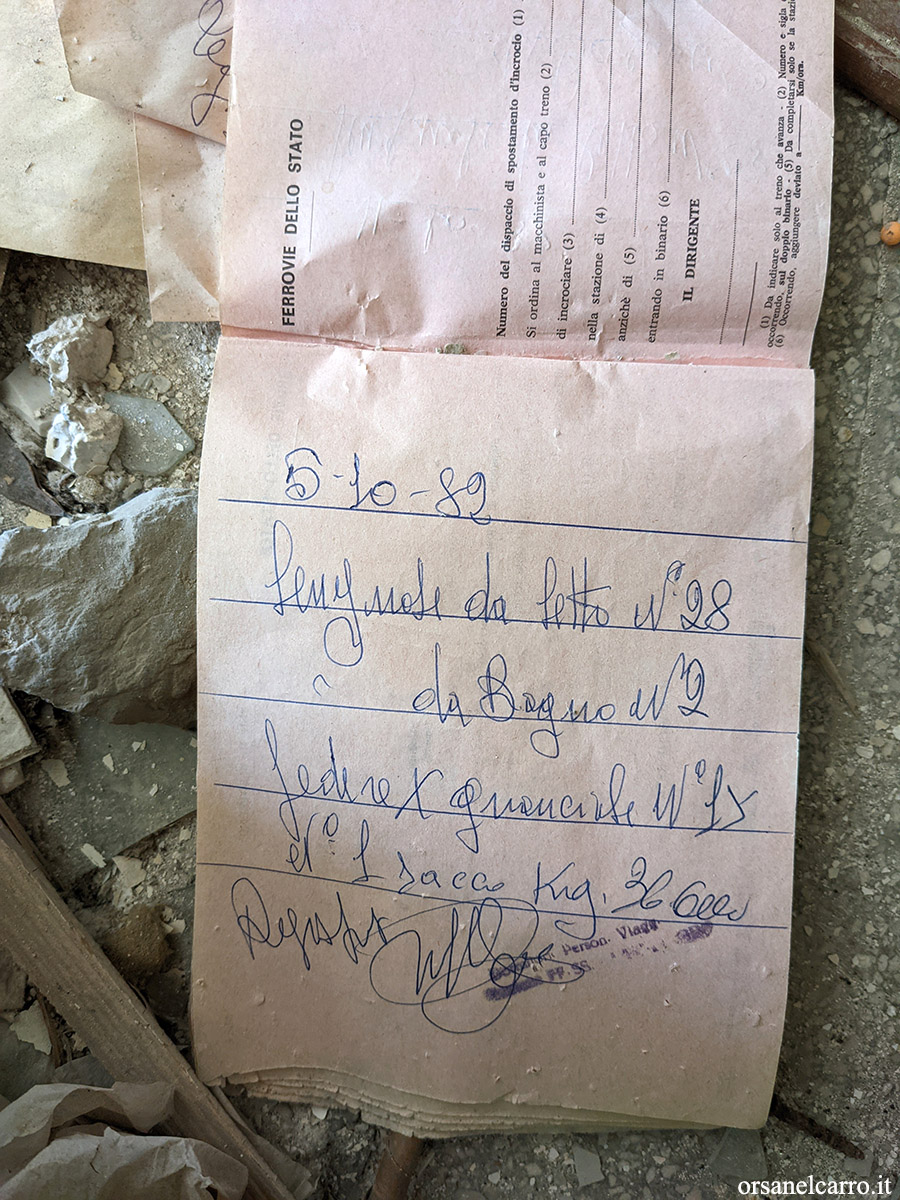 FERROVIE DELLO STATO
Numero del dispaccio di spostamento d'incrocio (1)
Si ordina al macchinista e al capo treno (2)
di incrociare (3)
nella stazione di (4)
anzichè di (5)
entrando in binario (6)
IL DIRIGENTE
(1) Da indicare solo al treno che avanza - (2) Numero e sigla
occorrendo, sul doppio binario - (5) Da completarsi solo se la
(6) Occorrendo, aggiungere deviato a Km/ora.
5-10-82
da letto N° 28
da Bagno N 2
federe X N° 15
N° 1 sacco Kg. 36
Person. Viagg
FF.SS.
orsanelcarro.it